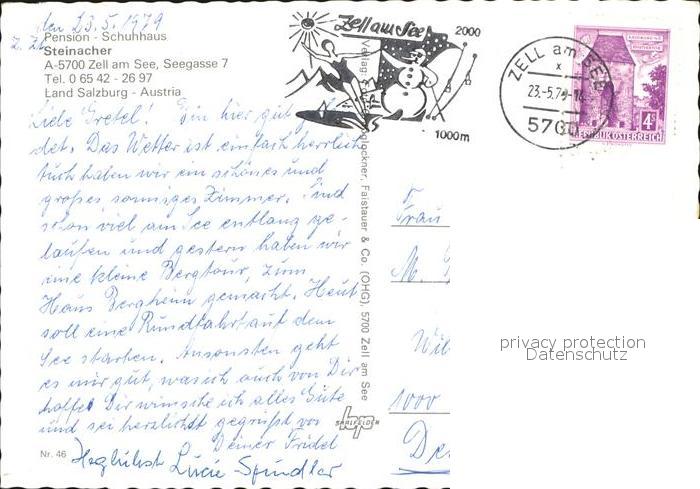 den 23.5.1979
Pension - Schuhhaus
Steinacher
A-5700 Zell am See, Seegasse 7
Tel. 0 65 42 - 26 97
Land Salzburg - Austria
Liebe Gretel! Bin hier gut ge-
det. Das Wetter ist einfach herrlich
Auch haben wir ein schönes und
großes sonniges Zimmer. Sind
schon viel am See entlang ge-
laufen und gestern haben wir
eine kleine Bergtour, zum
Haus Bergheim gemacht. Heut
soll eine Rundfahrt auf dem
See starten. Ansonsten geht
es mir gut, was ich auch von Dir
hoffe! Dir wünsche ich alles Gute
und sei herzlichst gegrüßt von
Deiner Fridel
Herzlichst Lucie Spindler
Nr. 46
Zell am See
2000
1000m
ZELL am SEE
23.-5.79-
5700
REPUBLIK ÖSTERREICH
4S
Faistauer & Co. (OHG), 5700 Zell am See
SAALFELDEN
Frau
M.
1000
privacy protection
Datenschutz